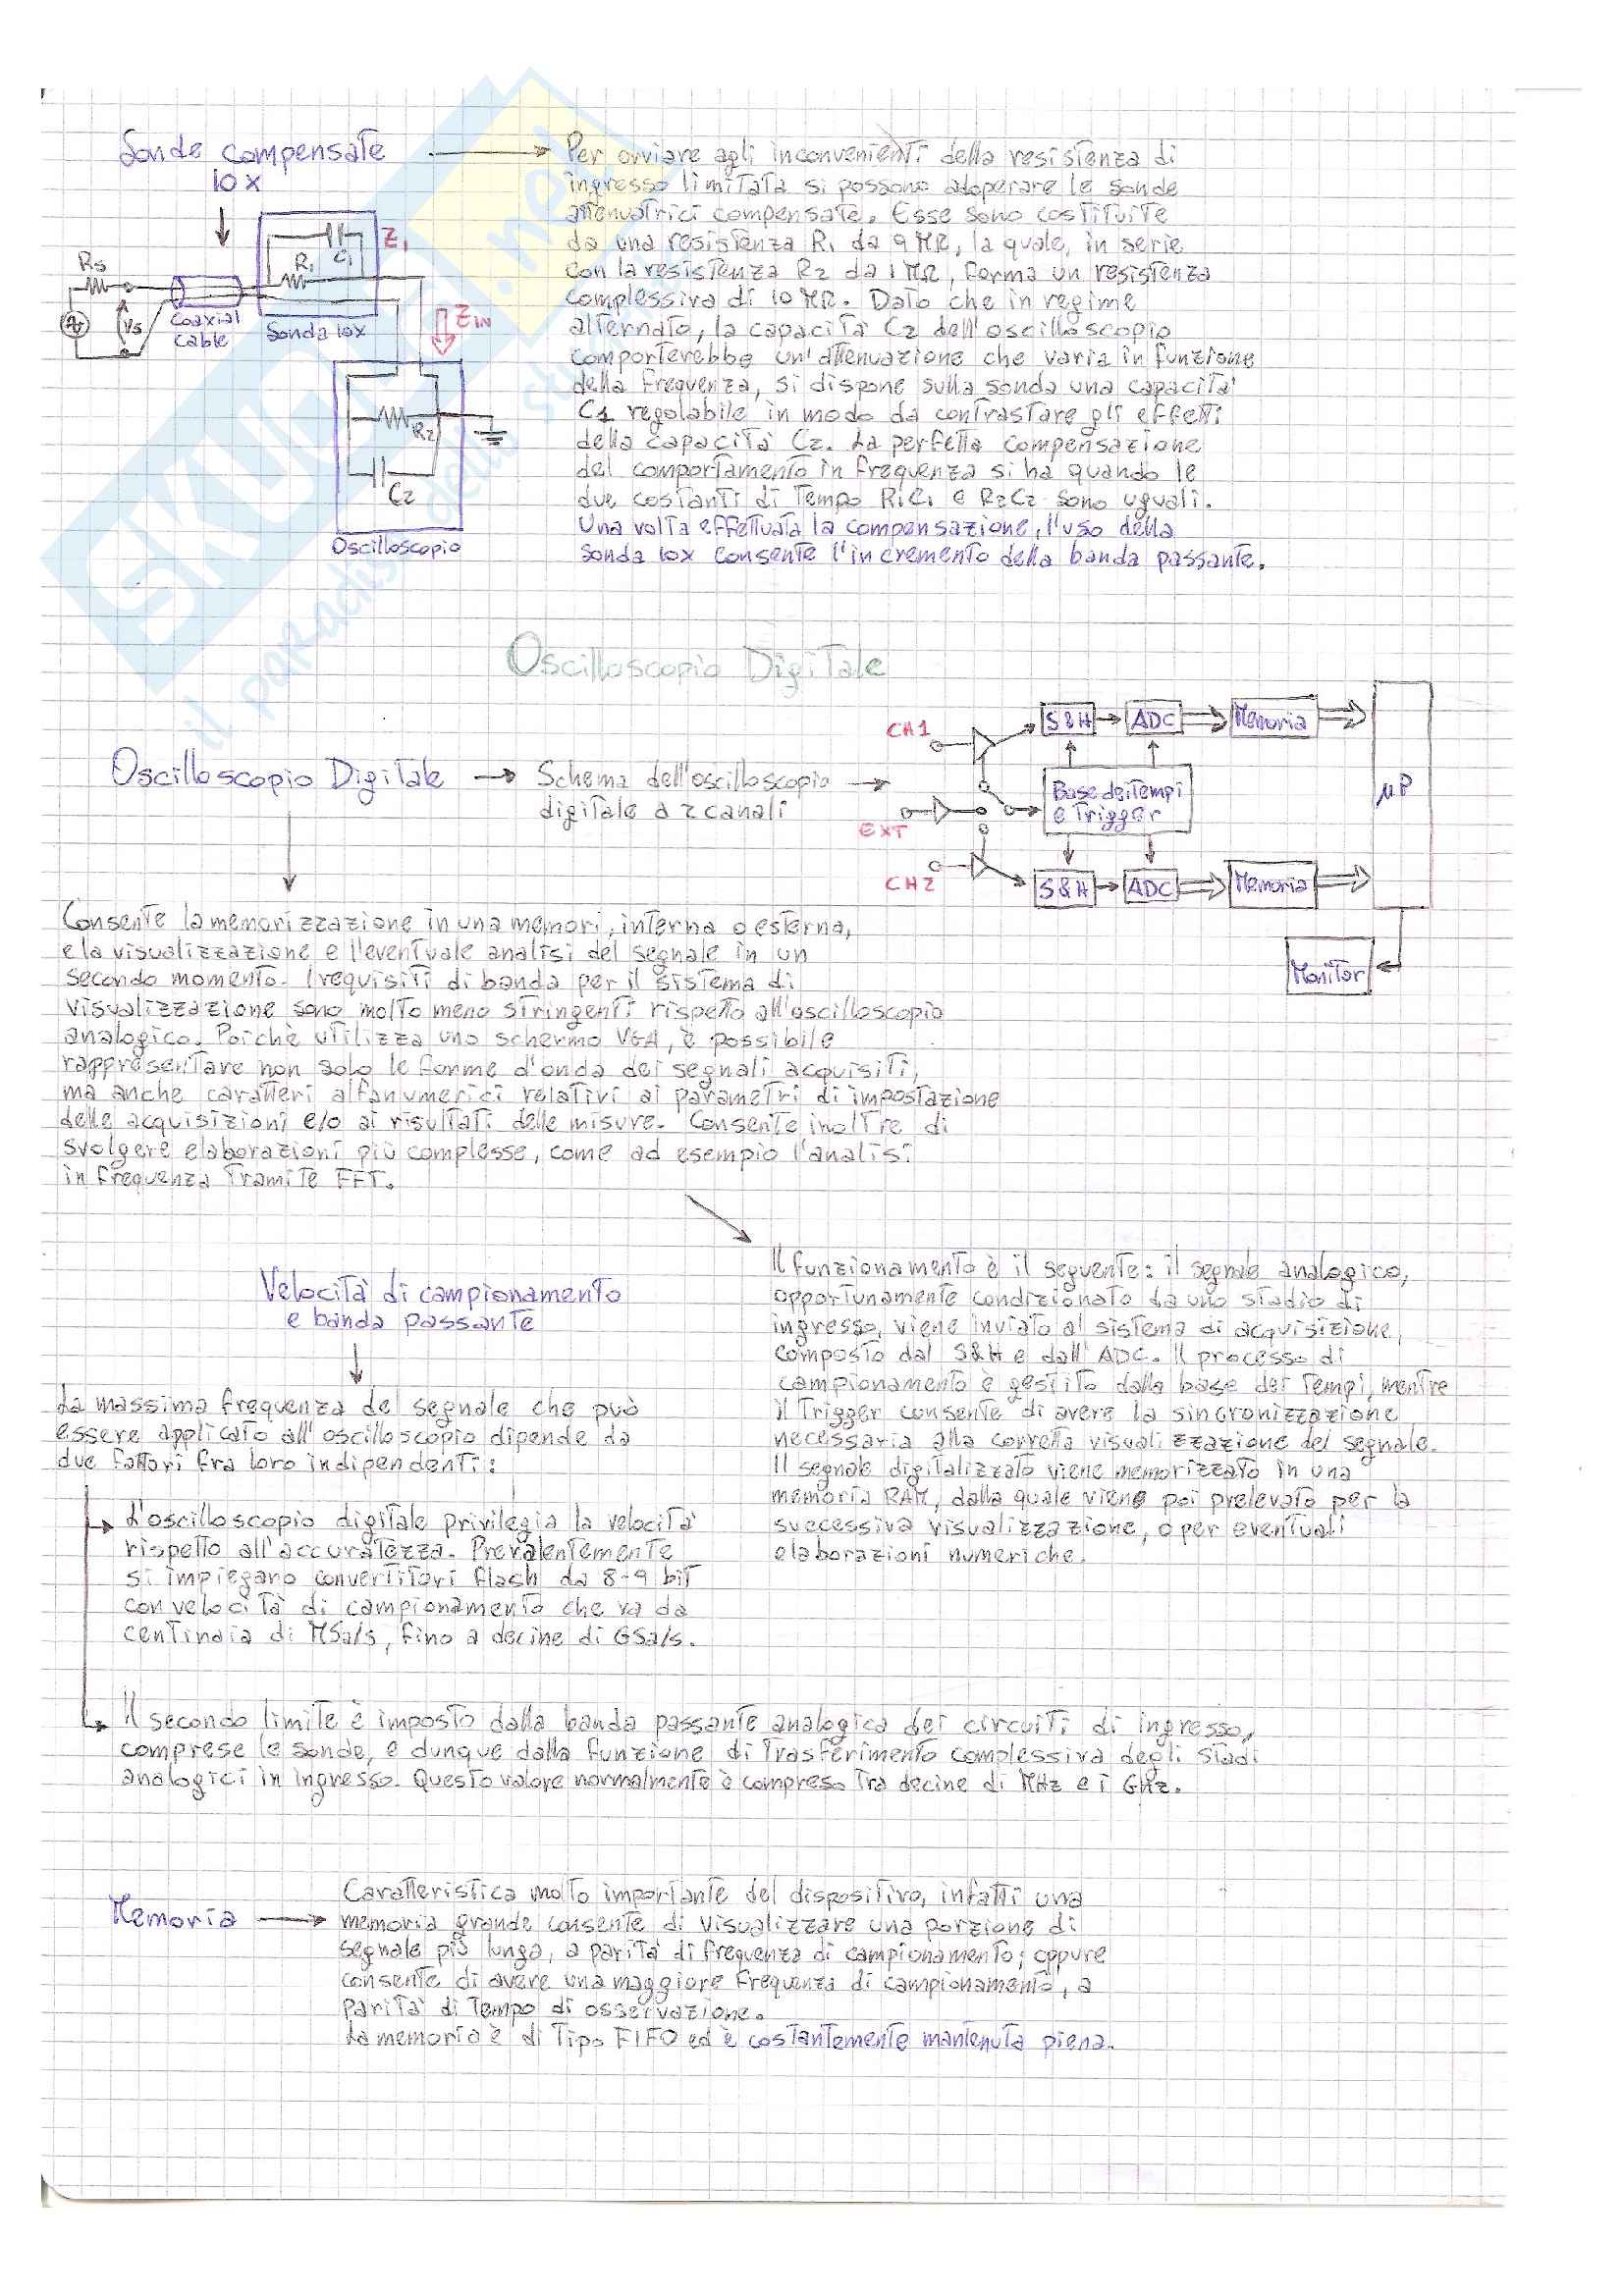 Sonde compensate
10x
Per ovviare agli inconvenienti della resistenza di
ingresso limitata si possono adoperare le sonde
attenuatrici compensate. Esse sono costituite
da una resistenza R1 da 9 MΩ, la quale, in serie
con la resistenza R2 da 1 MΩ, forma un resistenza
complessiva di 10 MΩ. Dato che in regime
alternato, la capacità C2 dell'oscilloscopio
comporterebbe un'attenuazione che varia in funzione
della frequenza, si dispone sulla sonda una capacità
C1 regolabile in modo da contrastare gli effetti
della capacità C2. La perfetta compensazione
del comportamento in frequenza si ha quando le
due costanti di tempo R1C1 e R2C2 sono uguali.
Una volta effettuata la compensazione, l'uso della
sonda 10x consente l'incremento della banda passante.
Rs
Vs
Coaxial
Cable
R1
C1
Z1
Sonda 10x
ZIN
R2
C2
Oscilloscopio
Oscilloscopio Digitale
Oscilloscopio Digitale
Schema dell'oscilloscopio
digitale a 2 canali
CH1
EXT
CH2
S&H
ADC
Memoria
Base dei Tempi
e Trigger
S&H
ADC
Memoria
μP
Monitor
Consente la memorizzazione in una memori, interna o esterna,
e la visualizzazione e l'eventuale analisi del segnale in un
secondo momento. I requisiti di banda per il sistema di
visualizzazione sono molto meno stringenti rispetto all'oscilloscopio
analogico. Poichè utilizza uno schermo VGA, è possibile
rappresentare non solo le forme d'onda dei segnali acquisiti,
ma anche caratteri alfanumerici relativi ai parametri di impostazione
delle acquisizioni e/o ai risultati delle misure. Consente inoltre di
svolgere elaborazioni più complesse, come ad esempio l'analisi
in frequenza tramite FFT.
Il funzionamento è il seguente: il segnale analogico,
opportunamente condizionato da uno stadio di
ingresso, viene inviato al sistema di acquisizione,
composto dal S&H e dall'ADC. Il processo di
campionamento è gestito dalla base dei tempi, mentre
il Trigger consente di avere la sincronizzazione
necessaria alla corretta visualizzazione del segnale.
Il segnale digitalizzato viene memorizzato in una
memoria RAM, dalla quale viene poi prelevato per la
successiva visualizzazione, o per eventuali
elaborazioni numeriche.
Velocità di campionamento
e banda passante
La massima frequenza del segnale che può
essere applicato all'oscilloscopio dipende da
due fattori fra loro indipendenti:
L'oscilloscopio digitale privilegia la velocità
rispetto all'accuratezza. Prevalentemente
si impiegano convertitori flash da 8-9 bit
con velocità di campionamento che va da
centinaia di MSa/s, fino a decine di GSa/s.
Il secondo limite è imposto dalla banda passante analogica dei circuiti di ingresso,
comprese le sonde, e dunque dalla funzione di trasferimento complessiva degli stadi
analogici in ingresso. Questo valore normalmente è compreso tra decine di MHz e i GHz.
Memoria
Caratteristica molto importante del dispositivo, infatti una
memoria grande consente di visualizzare una porzione di
segnale più lunga, a parità di frequenza di campionamento; oppure
consente di avere una maggiore frequenza di campionamento, a
parità di tempo di osservazione.
La memoria è di tipo FIFO ed è costantemente mantenuta piena.